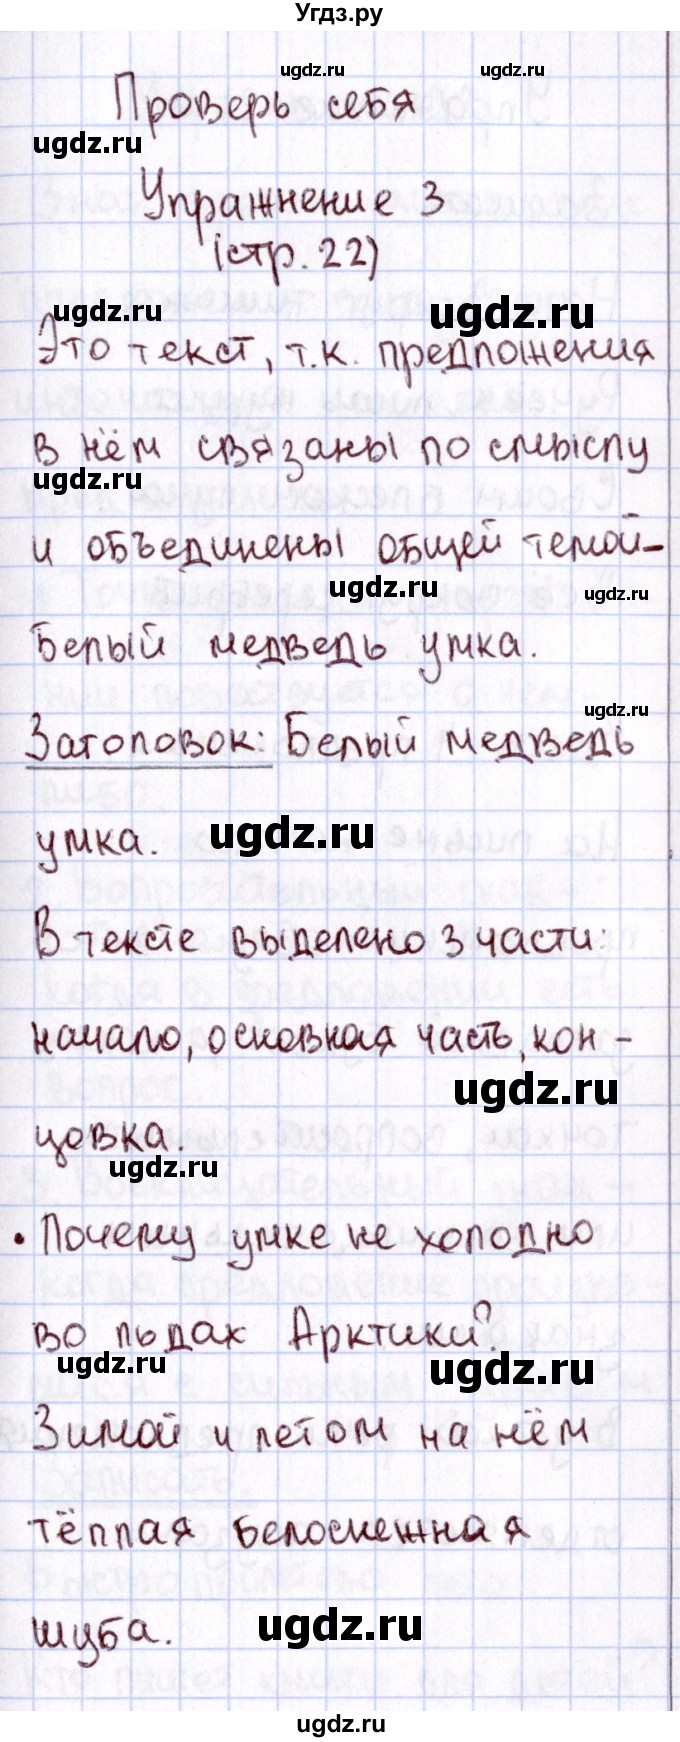 Угдз.ру
ugdz.ru ugdz.ru
Проверь себя
ugdz.ru
Упражнение 3
(стр. 22)
ugdz.ru ugdz.ru
Это текст, т.к. предложения
в нём связаны по смыслу
ugdz.ru
и объединены общей темой –
ugdz.ru ugdz.ru
Белый медведь умка.
ugdz.ru
Заголовок: Белый медведь
умка. ugdz.ru
В тексте выделено 3 части:
начало, основная часть, кон –
ugdz.ru
цовка.
ugdz.ru
• Почему умке не холодно
во льдах Арктики?
ugdz.ru ugdz.ru
Зимой и летом на нём
тёплая белоснежная
шуба. ugdz.ru
ugdz.ru